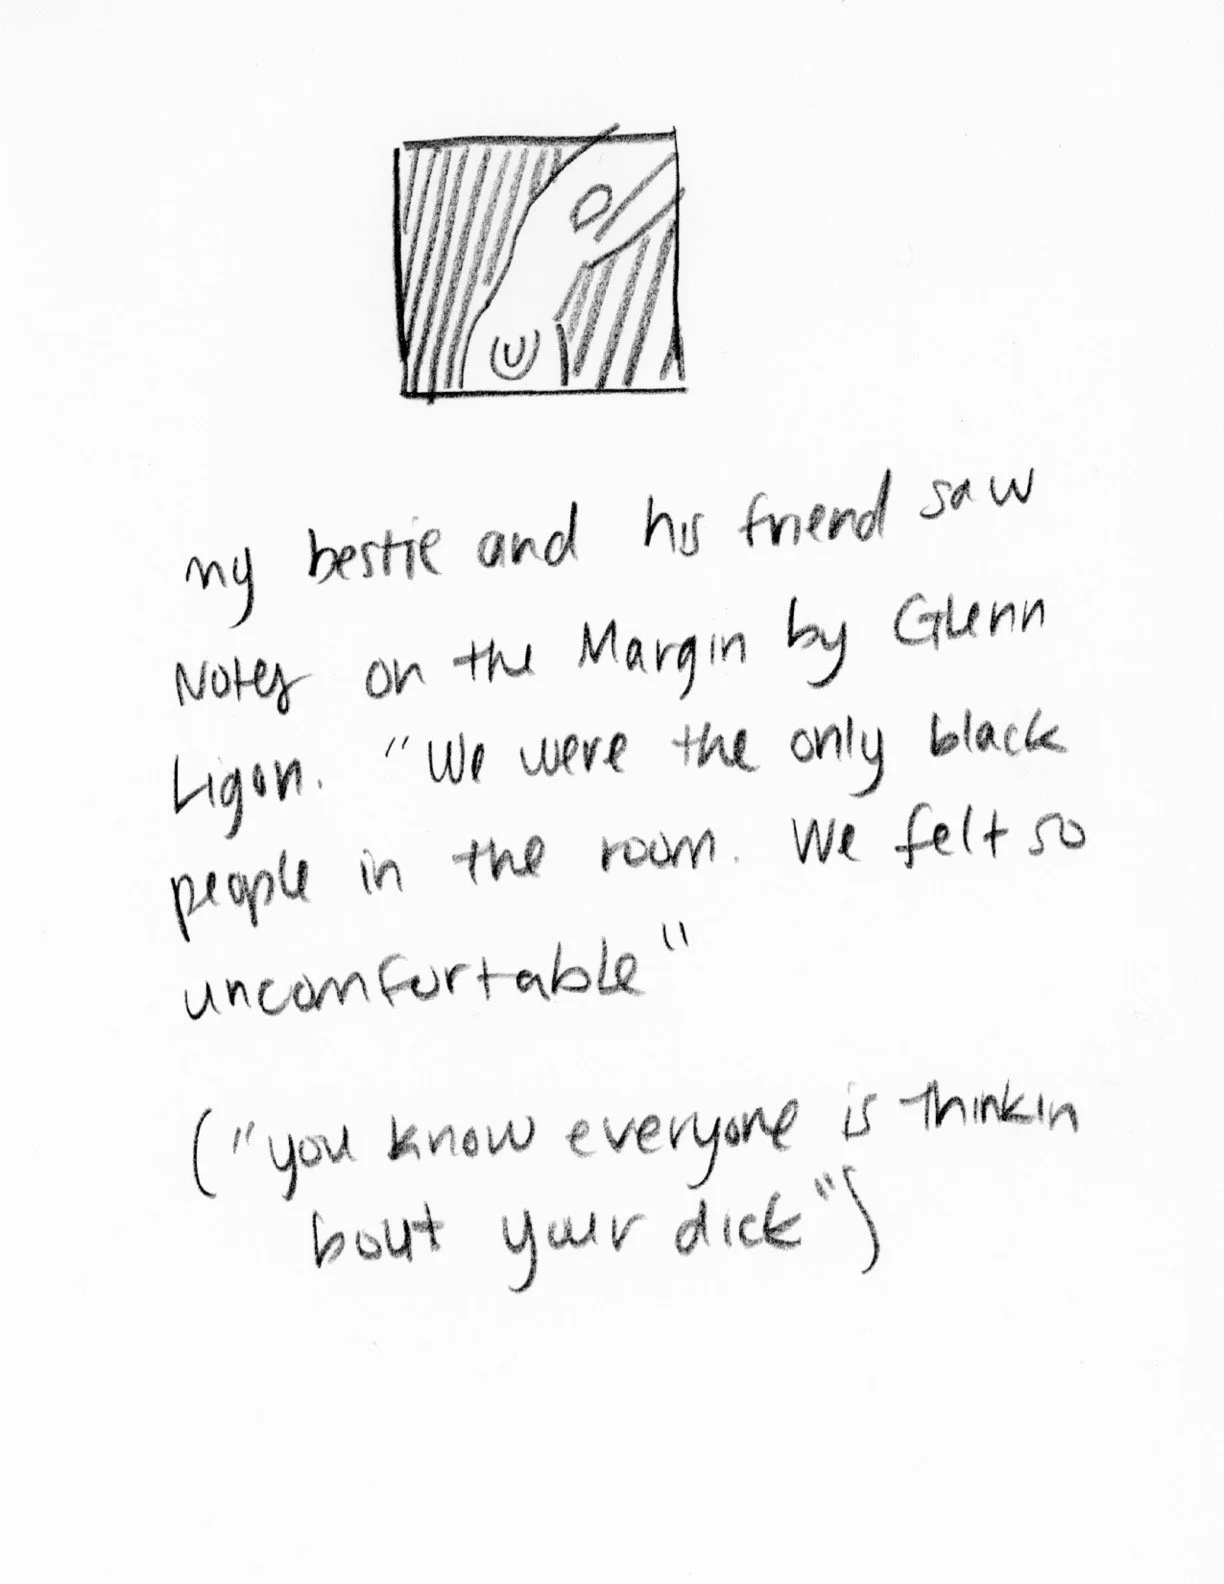 my bestie and his friend saw
Notes on the Margin by Glenn
Ligon. "We were the only black
people in the room. We felt so
uncomfortable"
("you know everyone is thinkin
bout your dick")